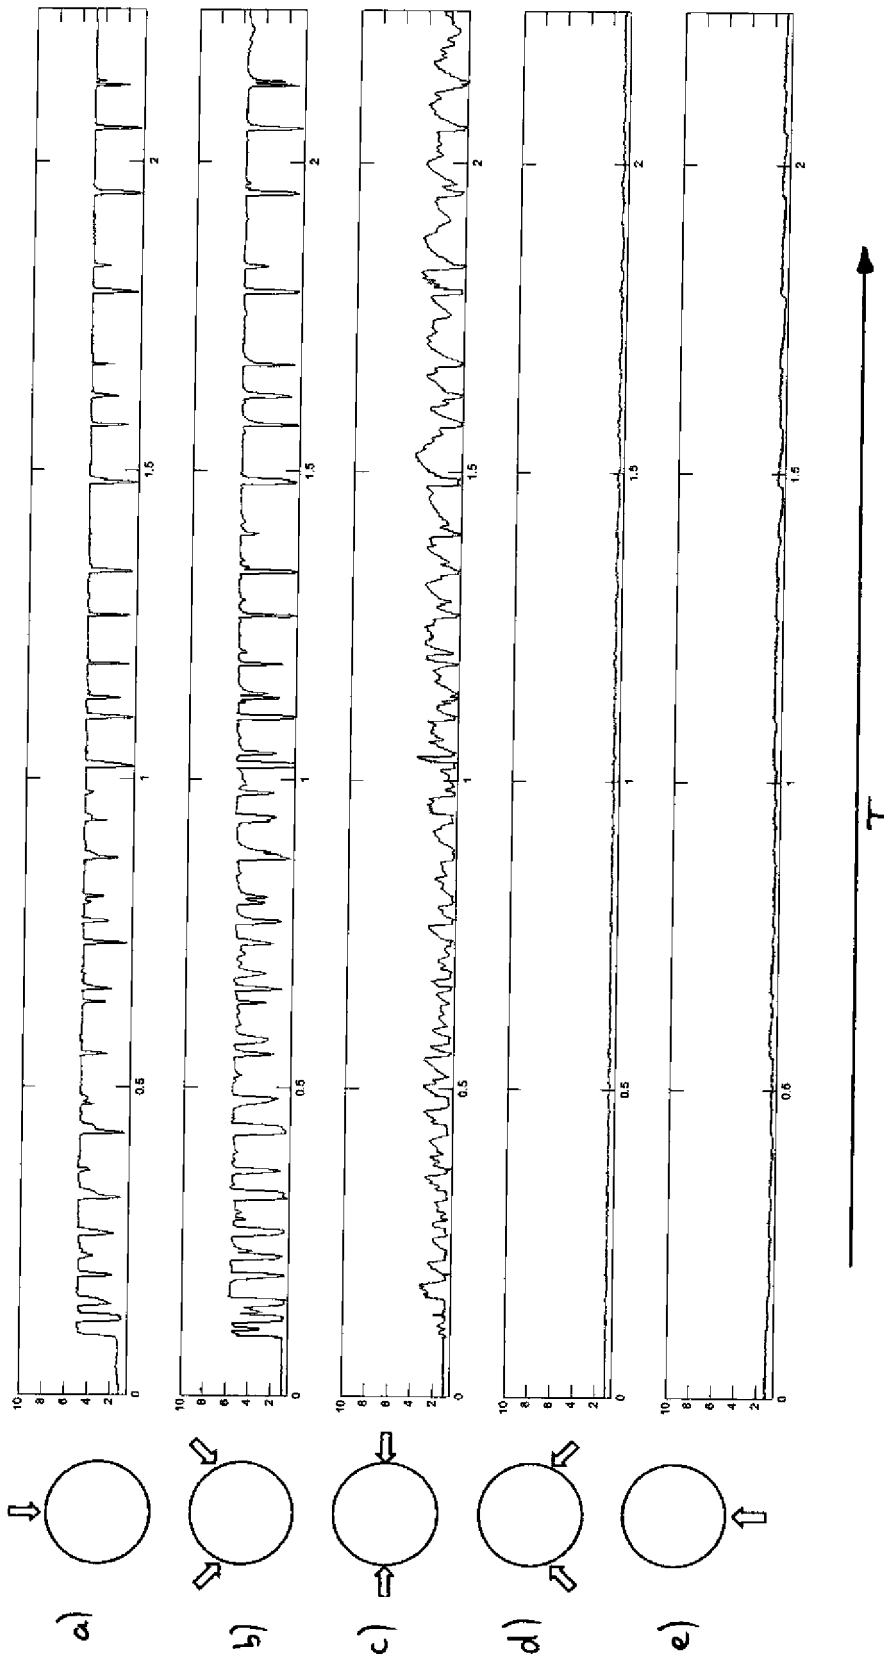 a)
10
8
6
4
2
0 0.5 1 1.5 2
b)
10
8
6
4
2
0 0.5 1 1.5 2
c)
10
8
6
4
2
0 0.5 1 1.5 2
d)
10
8
6
4
2
0 0.5 1 1.5 2
e)
10
8
6
4
2
0 0.5 1 1.5 2